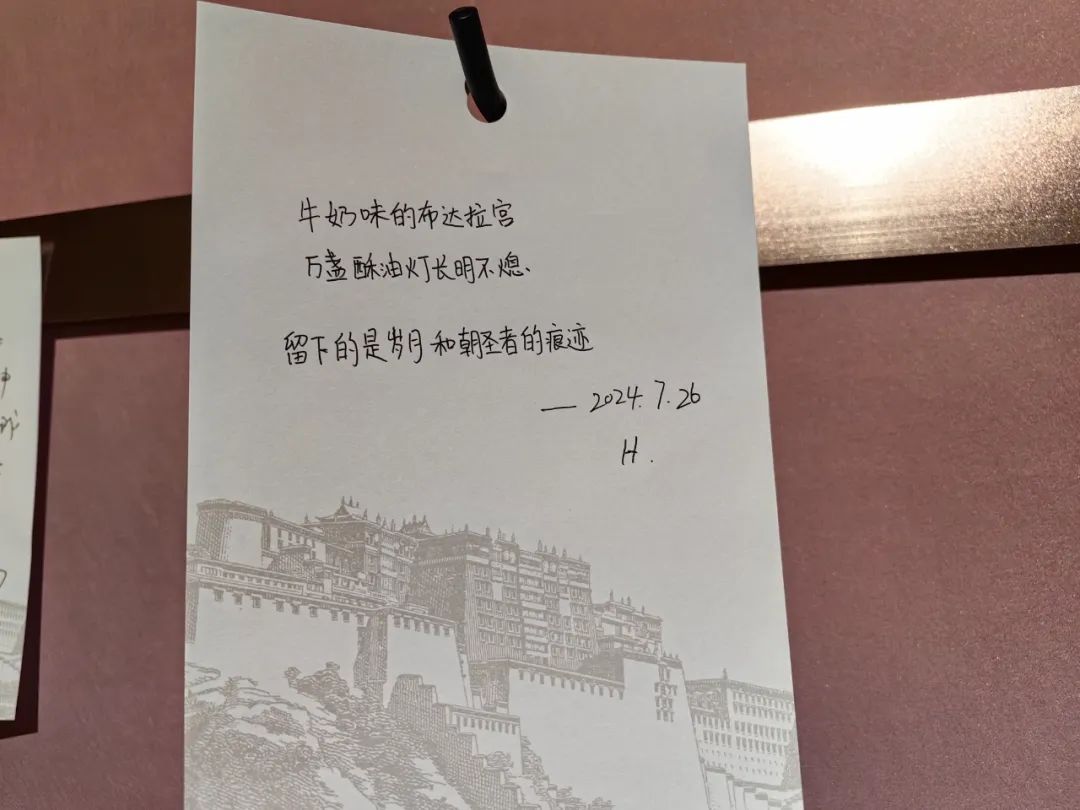 牛奶味的布达拉宫
万盏酥油灯长明不熄、
留下的是岁月和朝圣者的痕迹
— 2024.7.26
H.